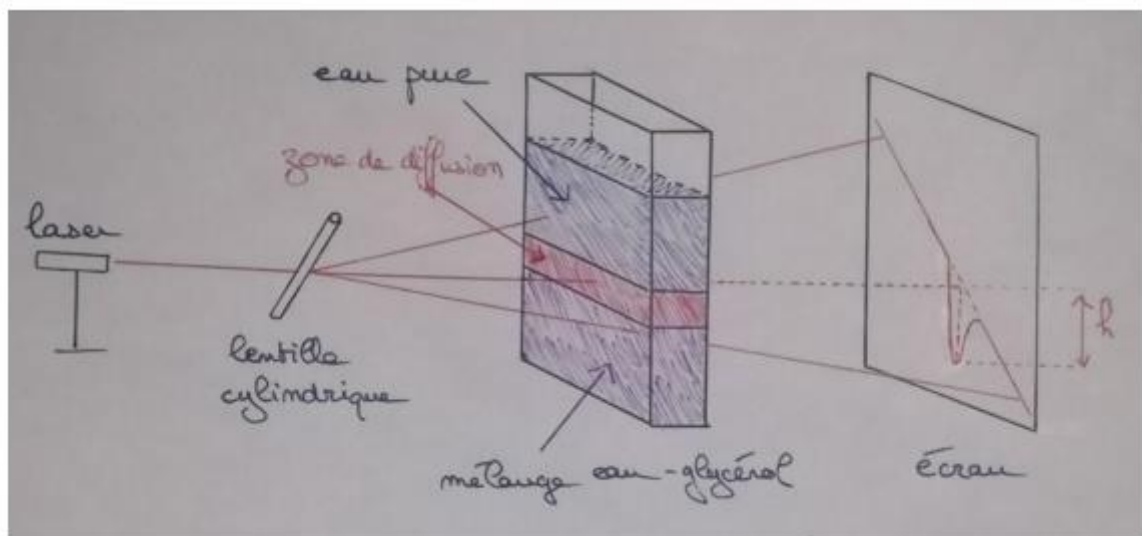 eau pure
zone de diffusion
laser
lentille
cylindrique
mélange eau-glycérol
écran
h